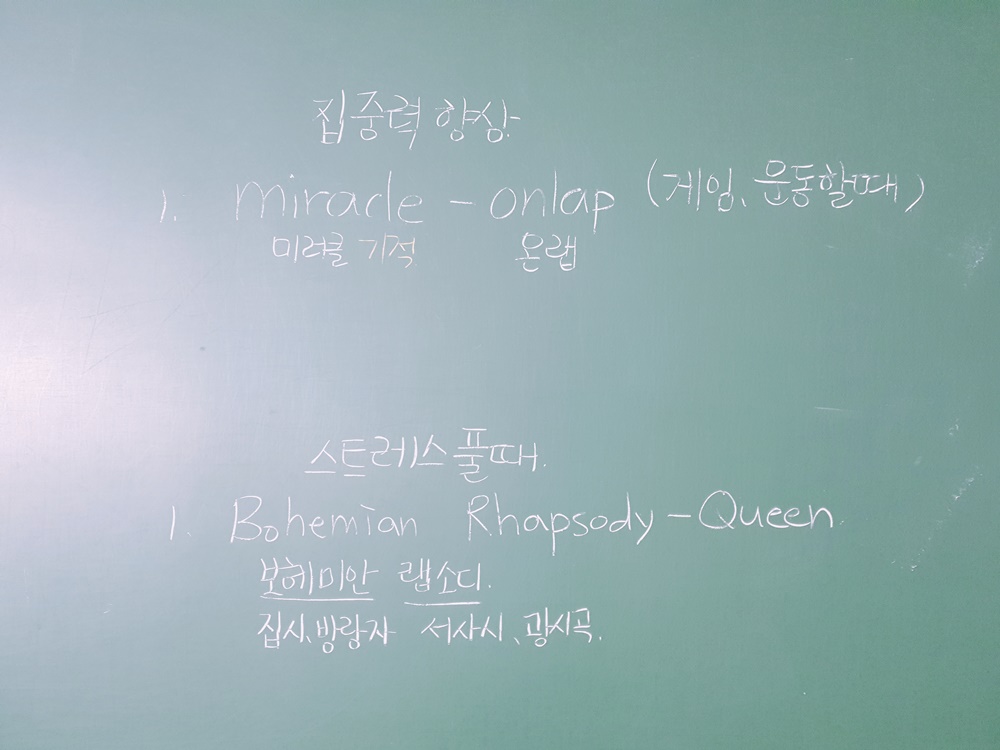 집중력 향상
1. miracle - onlap (게임, 운동할때)
미러클 기적 온랩
스트레스풀때.
1. Bohemian Rhapsody - Queen
보헤미안 랩소디.
집시, 방랑자 서사시, 광시곡.